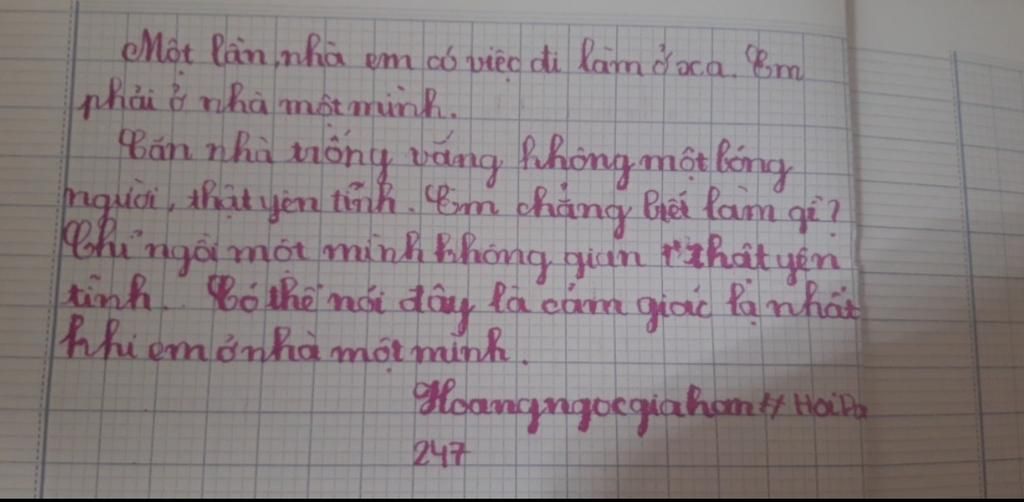 Một lần, nhà em có việc đi làm ở xa. Em
phải ở nhà một minh.
Căn nhà trống vắng không một bóng
người, thật yên tĩnh. Em chẳng biết làm gì?
Chỉ ngồi một minh không gian thật yên
tĩnh. Có thể nói đây là cảm giác lạ nhất
khi em ở nhà một mình.
Hoangngocgiaham # HaiDa
247